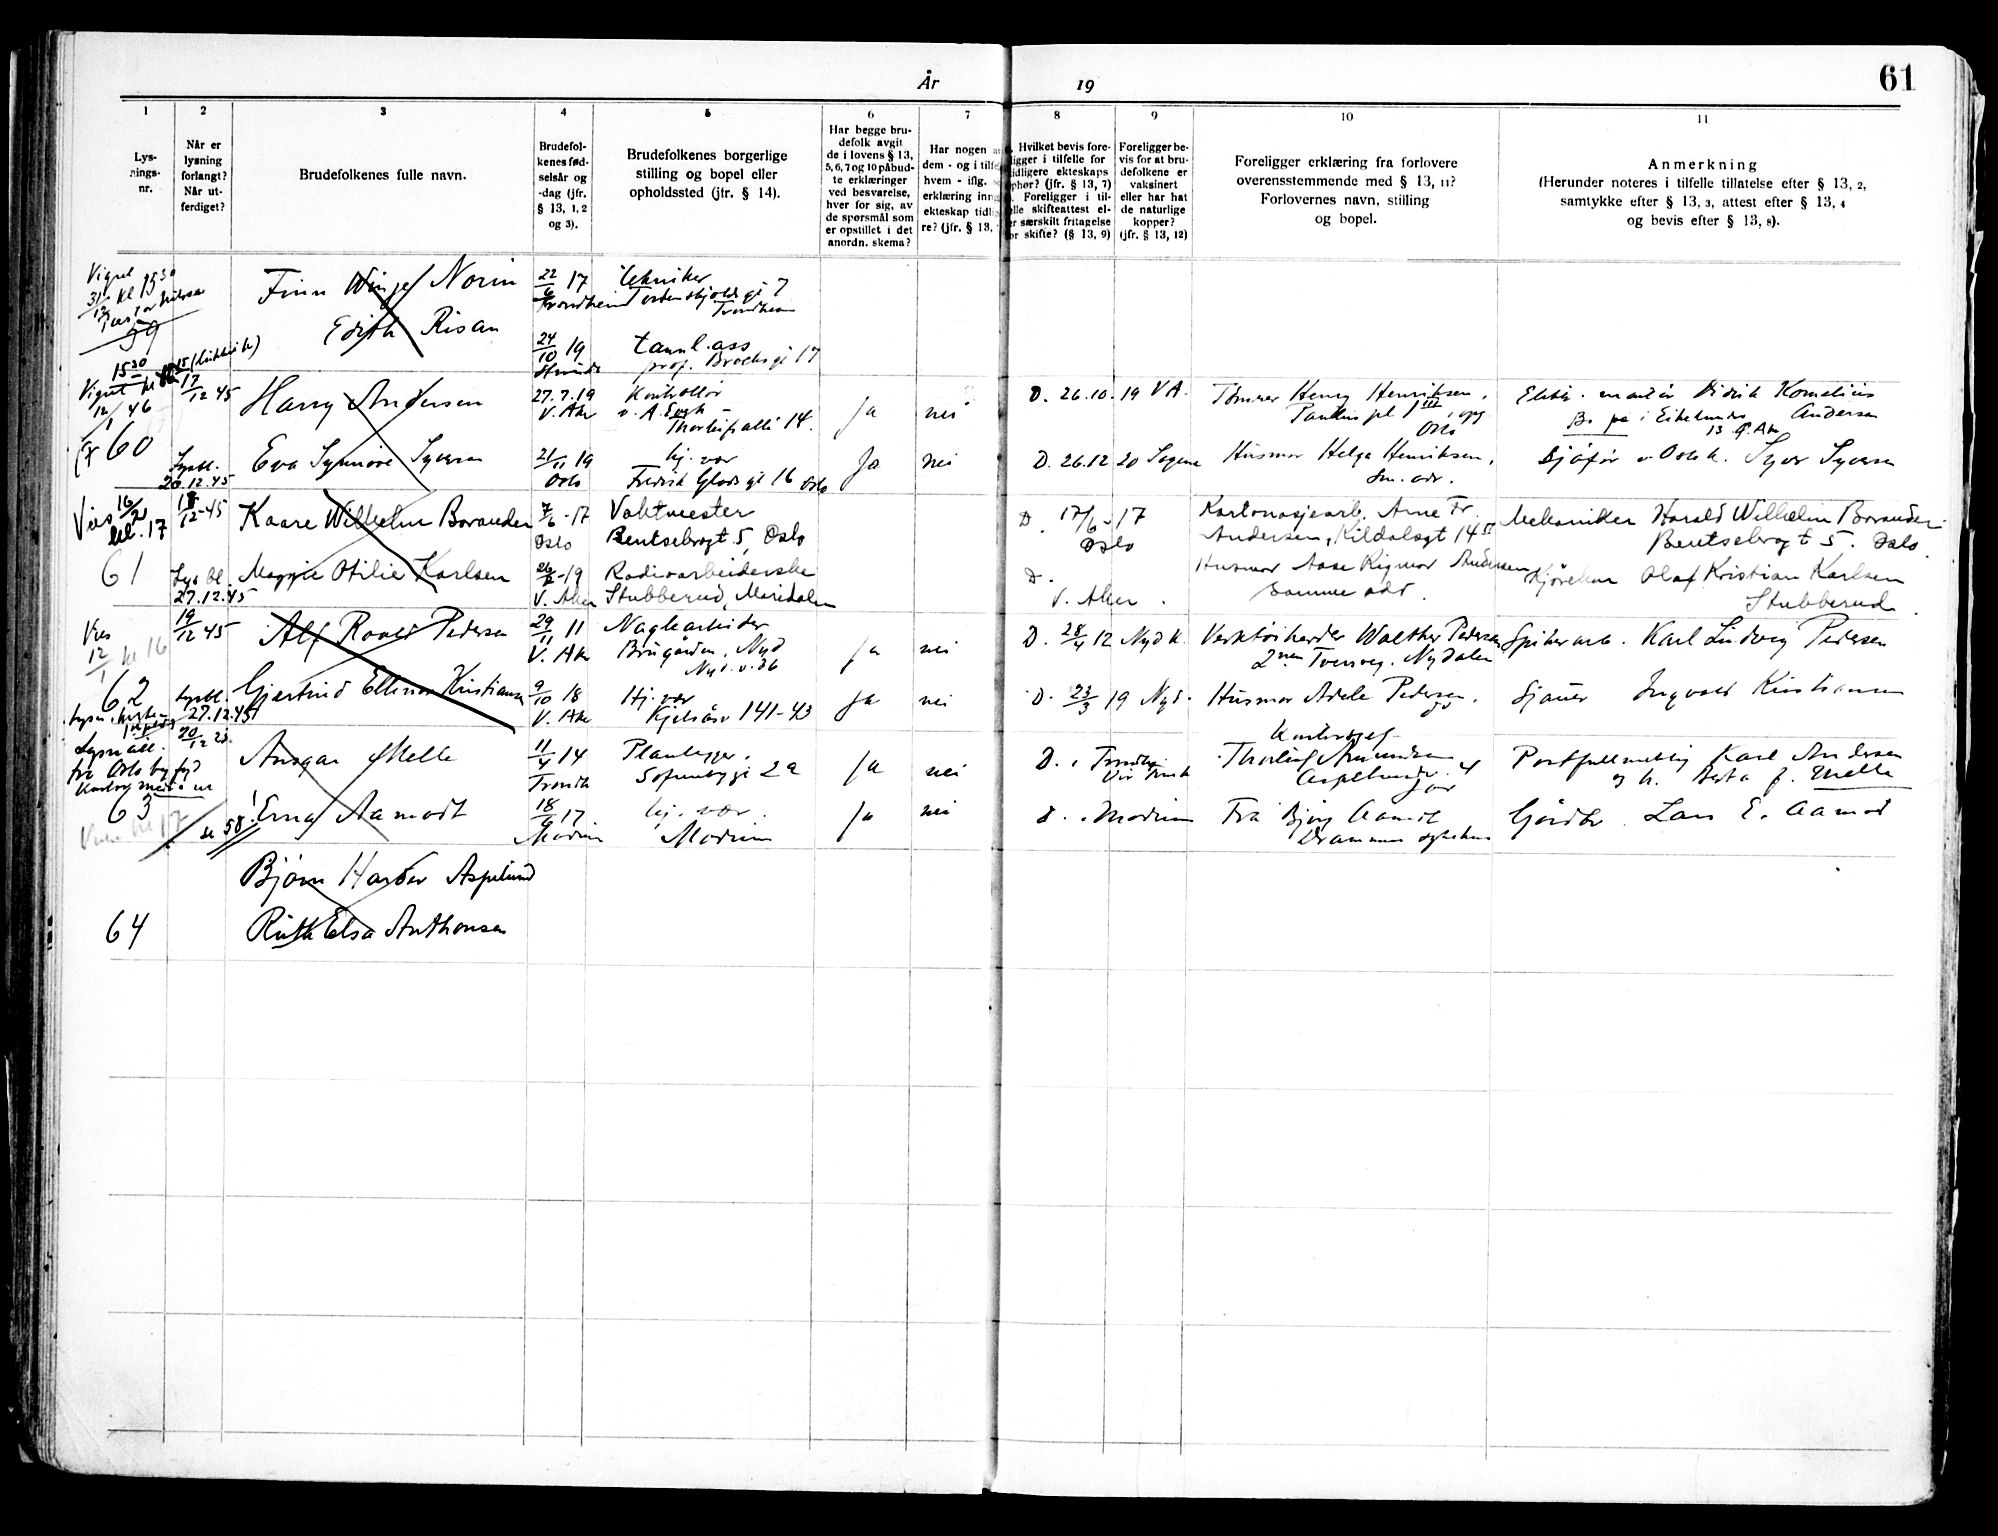 År 19
61
1
2
3
4
5
6
7
8
9
10
11
Lys-
nings-
nr.
Når er
lysning
forlangt?
Når ut-
ferdiget?
Brudefolkenes fulle navn.
Brudefol-
kenes fød-
selsår og
-dag (jfr.
§ 13, 1, 2
og 3).
Brudefolkenes borgerlige
stilling og bopel eller
opholdssted (jfr. § 14).
Har begge bru-
defolk avgit
de i lovens § 13,
5, 6, 7 og 10 påbud-
te erklæringer
ved besvarelse,
hver for sig, av
de spørsmål som
er opstillet i det
anordn. skema?
Har nogen
dem - og i tilf
hvem - iflg.
erklæring inn
ekteskap tidl
re? (jfr. § 13,
Hvilket bevis fore-
ligger i tilfelle for
tidligere ekteskaps
ophør? (jfr. § 13, 7)
Foreligger i til-
elle skifteattest el-
er særskilt fritagelse
or skifte? (§ 13, 9)
Foreligger be-
vis for at bru-
defolkene er
vaksinert
eller har hat
de naturlige
kopper?
(jfr. § 13, 12)
Foreligger erklæring fra forlovere
overensstemmende med § 13, 11?
Forlovernes navn, stilling
og bopel.
Anmerkning
(Herunder noteres i tilfelle tillatelse efter § 13, 2,
samtykke efter § 13, 3, attest efter § 13, 4
og bevis efter § 13, 8).
Vigsel
31/12 kl 15 30
59
Finn Winge Norin
22/6 17
Trondheim
tekniker
Tordenskjolds gt 7
Trondheim
Edith Risan
24/10 19
Strinda
tannl. ass
prof. Brochs gt 17
15 30
12/1 46
60
17/12 45
Harry Andersen
27.7.19
V. Aker
Kontrollør
14.
Ja
nei
D. 26.10.19 V A.
Tømrer Henry Henriksen,
Oslo
Elektr. montør Didrik Kornelius
Andersen
Lysbl.
20.12.45
Eva Synnøve Syversen
21/11 19
Oslo
hj. vær
Fredrik Glads gt 16 Oslo
Ja
nei
D. 26.12 20 Sagene
Husmor Helga Henriksen,
Sm. adr.
Sjåfør v Oslo k. Syver Syversen
Vies 16/2
kl. 17
61
18/12-45
Kaare Wilhelm Borander
7/6-17
Oslo
Vaktmester
Bentsebrogt 5, Oslo
D. 17/6-17
Oslo
Kartonasjearb. Arne Fr.
Andersen, Kildalsgt 14
Mekaniker Harald Wilhelm Borander
Bentsebrogt 5. Oslo.
Lysbl.
27.12.45
Maggie Otilie Karlsen
V. Aker
Radioarbeiderske
Stubberud, Maridalen
D.
V. Aker.
Husmor Aase Rigmor Andersen
samme adr.
Kjørekar Olaf Kristian Karlsen
Stubberud.
Vies
12/1 kl 16
62
19/12 45
Alf Roald Pedersen
29/11 11
V. Ak
Naglearbeider
Brugården, Nyd
Ja
nei
D. 28/4 12 Nyd k.
Verktøiherder Walther Pedersen
2nen Tverrveg. Nydalen
Spikerarb. Karl Ludvig Pedersen
Lysbl.
27.12.45
Gjertrud Ellinor Kristiansen
9/10 18
V. Ak
Hj. vær
Kjelsåsv 141-43
Ja
nei
D. 23/3 19 Nyd.
Husmor Adele Pedersen.
Sjauer Ingvald Kristiansen
Lysn. att.
fra Oslo byfgd
63
20/12 45
Ansgar Melle
11/4 14
Trondh
Planlegger.
Sofienbg gt 2a
Ja
nei
D.
Kontorsjef
Thorleif Amundsen
Postfullmektig Karl Andersen
og h. Berta f. Melle
Erna Aamodt
18/9 17
Modum
hj. vær.
Modum
Ja
nei
D. Modum
Frk Bjørg Aamodt
Drammen sykehus
Gårdbr. Lars E. Aamodt
kl 17
se 58!
64
Bjørn Harder Aspelund
Ruth Elsa Anthonsen